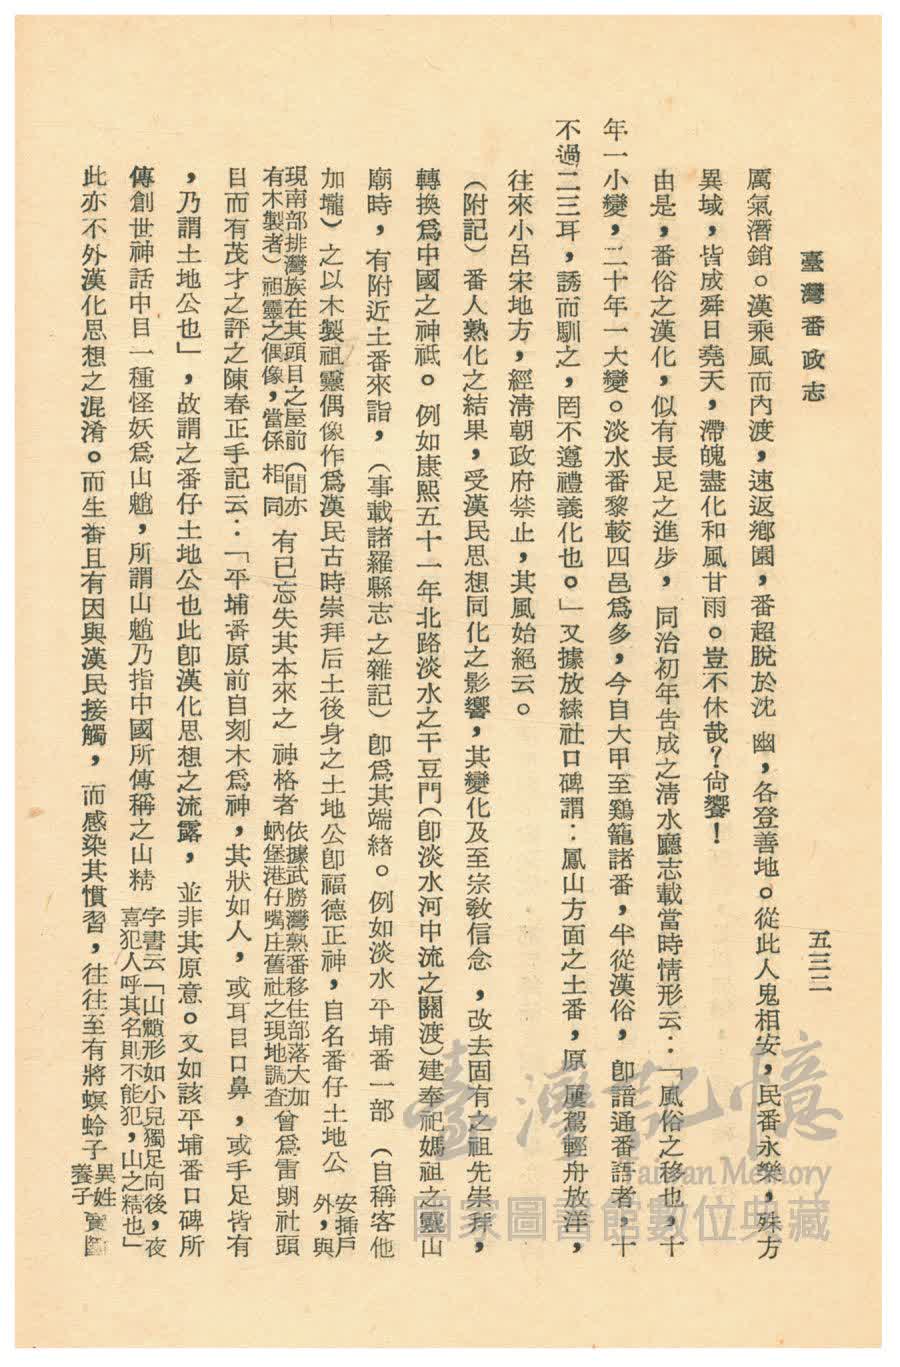 臺灣番政志
五三二
厲氣潛銷。漢乘風而內渡,速返鄉園,番超脫於沈幽,各登善地。從此人鬼相安,民番永樂,殊方
異域,皆成舜日堯天,滯魄盡化和風甘雨。豈不休哉?尙饗!
由是,番俗之漢化,似有長足之進步,同治初年告成之淸水廳志載當時情形云:「風俗之移也,十
年一小變,二十年一大變。淡水番黎較四邑爲多,今自大甲至鷄籠諸番,半從漢俗,卽諳通番語者,十
不過二三耳,誘而馴之,罔不遵禮義化也。」又據放縤社口碑謂:鳳山方面之土番,原屢駕輕舟放洋,
往來小呂宋地方,經淸朝政府禁止,其風始絕云。
(附記)番人熟化之結果,受漢民思想同化之影響,其變化及至宗敎信念,改去固有之祖先崇拜,
轉換爲中國之神祇。例如康熙五十一年北路淡水之干豆門(卽淡水河中流之關渡)建奉祀媽祖之靈山
廟時,有附近土番來詣,(事載諸羅縣志之雜記)卽爲其端緒。例如淡水平埔番一部(自稱客他
加壠)之以木製祖靈偶像作爲漢民古時崇拜后土後身之土地公卽福德正神,自名番仔土地公 安插戶外,與
現南部排灣族在其頭目之屋前(間亦有木製者)祖靈之偶像,當係相同 有已忘失其本來之神格者 依據武朥灣熟番移住部落大加蚋堡港仔嘴庄舊社之現地調査 曾爲雷朗社頭
目而有茂才之評之陳春正手記云:「平埔番原前自刻木爲神,其狀如人,或耳目口鼻,或手足皆有
,乃謂土地公也」,故謂之番仔土地公也此卽漢化思想之流露,並非其原意。又如該平埔番口碑所
傳創世神話中目一種怪妖爲山魈,所謂山魈乃指中國所傳稱之山精 字書云「山魈形如小兒獨足向後,夜喜犯人呼其名則不能犯,山之精也」
此亦不外漢化思想之混淆。而生番且有因與漢民接觸,而感染其慣習,往往至有將螟蛉子 異姓養子
臺灣記憶
Taiwan Memory
國家圖書館數位典藏